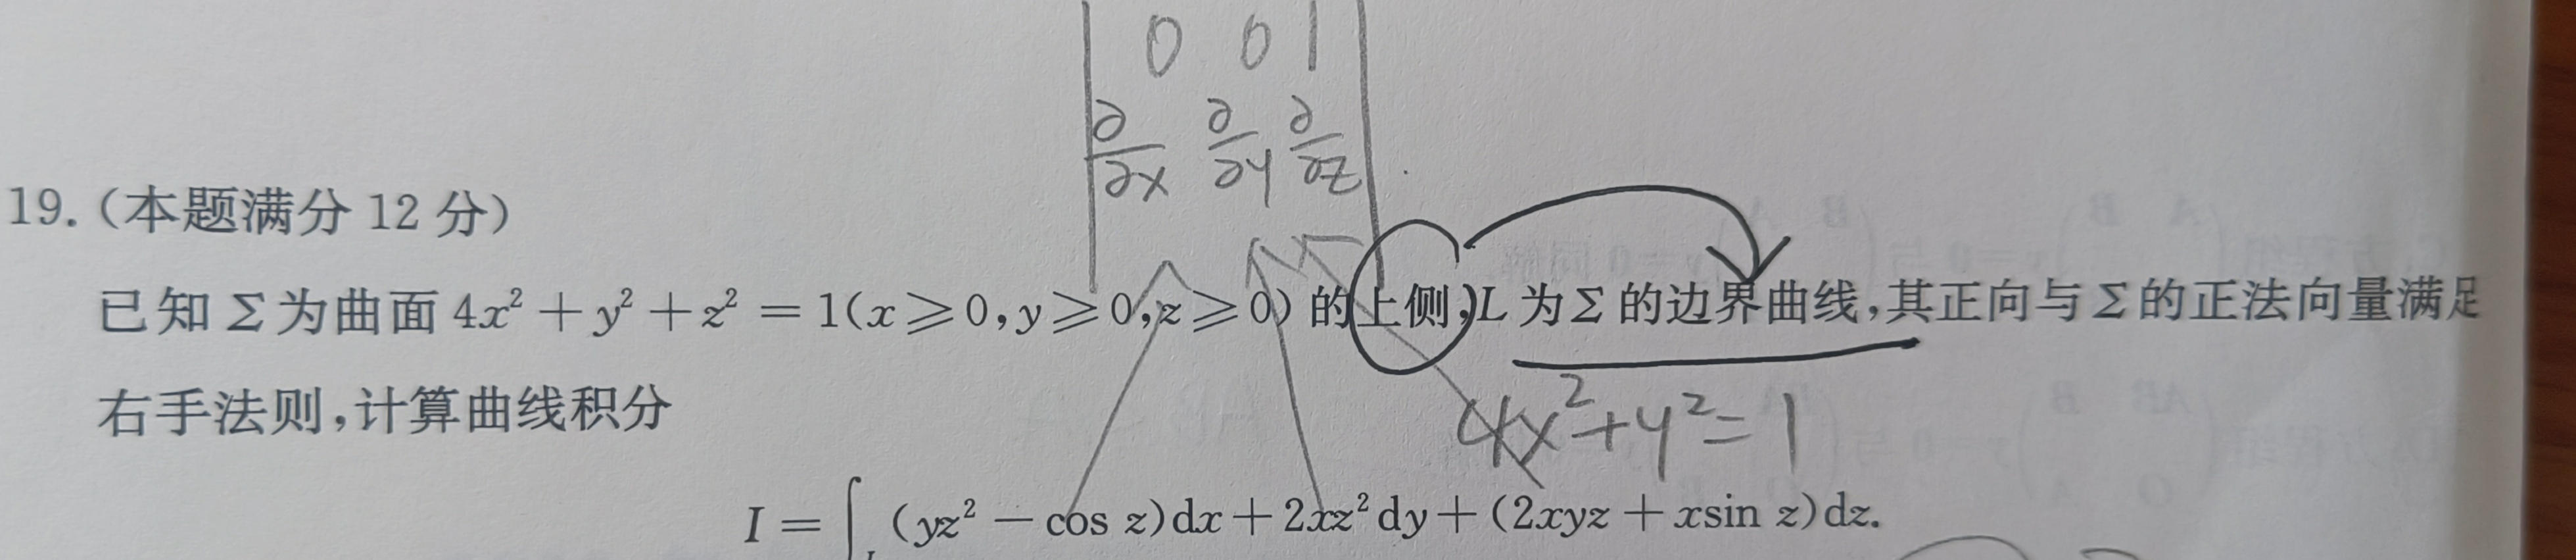 0 0 1
∂/∂x ∂/∂y ∂/∂z
19.(本题满分 12 分)
已知 Σ 为曲面 4x² + y² + z² = 1(x ⩾ 0, y ⩾ 0, z ⩾ 0) 的上侧, L 为 Σ 的边界曲线,其正向与 Σ 的正法向量满足
右手法则,计算曲线积分
4x²+y²=1
I = ∫_L (yz² − cos z)dx + 2xz²dy + (2xyz + xsin z)dz.